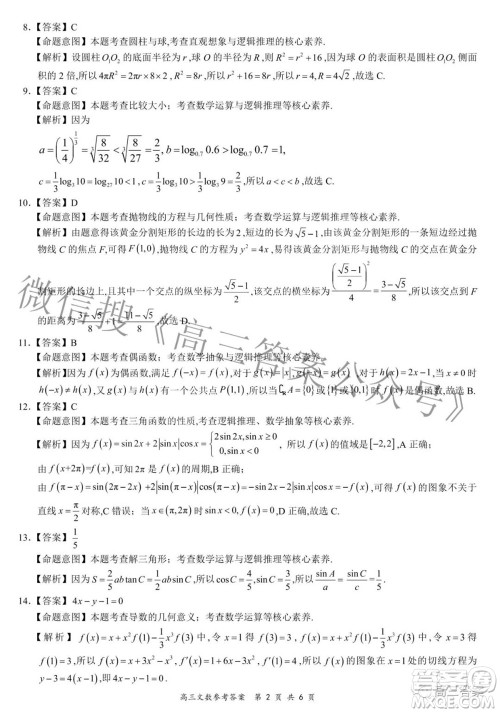 8. 【答案】C
【命题意图】本题考查圆柱与球,考查直观想象与逻辑推理的核心素养.
【解析】设圆柱O₁O₂的底面半径为r,球O的半径为R,则R²=r²+16,因为球O的表面积是圆柱O₁O₂侧面
积的2倍,所以4πR²=2πr×8×2,R²=8r,所以r²+16=8r,所以r=4,R=4√2,故选C.
9. 【答案】C
【命题意图】本题考查比较大小;考查数学运算与逻辑推理等核心素养.
【解析】因为
a=(1/4)^(1/3)=∛(8/32)<∛(8/27)=2/3,b=log₀.₇0.6>log₀.₇0.7=1,
c=1/3 log₃10=log₂₇10<1,c=1/3 log₃10>1/3 log₃9=2/3,所以a<c<b,故选C.
10. 【答案】D
【命题意图】本题考查抛物线的方程与几何性质;考查数学运算与逻辑推理等核心素养.
【解析】由题意得该黄金分割矩形的长为2,短边长为√5−1,由该黄金分割矩形的一条短边经过抛
物线C的焦点F,可得F(1,0),抛物线C的方程为y²=4x,易得该黄金分割矩形与抛物线C的交点在黄金分
割矩形的长边上,且其中一个交点的纵坐标为(√5−1)/2,该交点的横坐标为((√5−1)/2)²/4=(3−√5)/8,所以该交点到F
的距离为(3−√5)/8+1=(11−√5)/8,故选D.
11. 【答案】B
【命题意图】本题考查偶函数;考查数学抽象与逻辑推理等核心素养.
【解析】因为f(x)为偶函数,所以f(−x)=f(x),对于g(x)=|x|,g(−x)=g(x),对于h(x)=2x−1,当x≠0时
h(−x)≠h(x),又f(x)与h(x)有一个公共点P(1,1),所以∁ᵣA={0}或{0,1},故选B.
12. 【答案】C
【命题意图】本题考查三角函数的性质,考查逻辑推理、数学抽象等核心素养.
【解析】因为f(x)=sin2x+2|sinx|cosx={2sin2x,sinx≥0 0,sinx<0,所以f(x)的值域是[−2,2],A正确;
由f(x+2π)=f(x),可得π是f(x)的周期,B正确;
由f(π−x)=sin(2π−2x)+2|sin(π−x)|cos(π−x)=−sin2x−2|sinx|cosx=−f(x),可得f(x)的图象不关于
直线x=π/2对称,C错误;当x∈(π,2π)时sinx<0,D正确.故选C.
13. 【答案】1/5
【命题意图】本题考查解三角形;考查数学运算与逻辑推理等核心素养.
【解析】因为S=1/2 ab tanC=1/2 ab sinC,所以
14. 【答案】4x−y−1=0
【命题意图】本题考查导数的几何意义;考查数学运算等核心素养.
【解析】f(x)=x+x²f(1)−1/3 x³f(3)中,令x=1得f(3)=3,令x=3得
f(1)=3,所以f(x)=x+3x²−x³,f′(x)=1+6x−3x²,f′(1)=4,所以曲线y=f(x)在点(1,f(1))处的切线方
高三文数参考答案 第 2 页 共 6 页
微信搜《高三答案公众号》